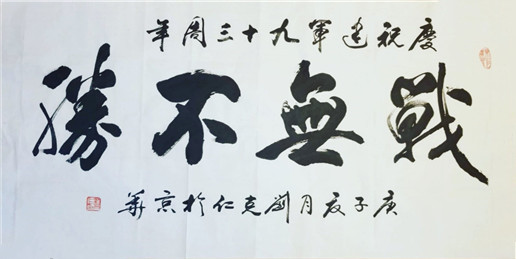 慶祝建軍九十三周年
戰無不勝
庚子夏月劉克仁於京華